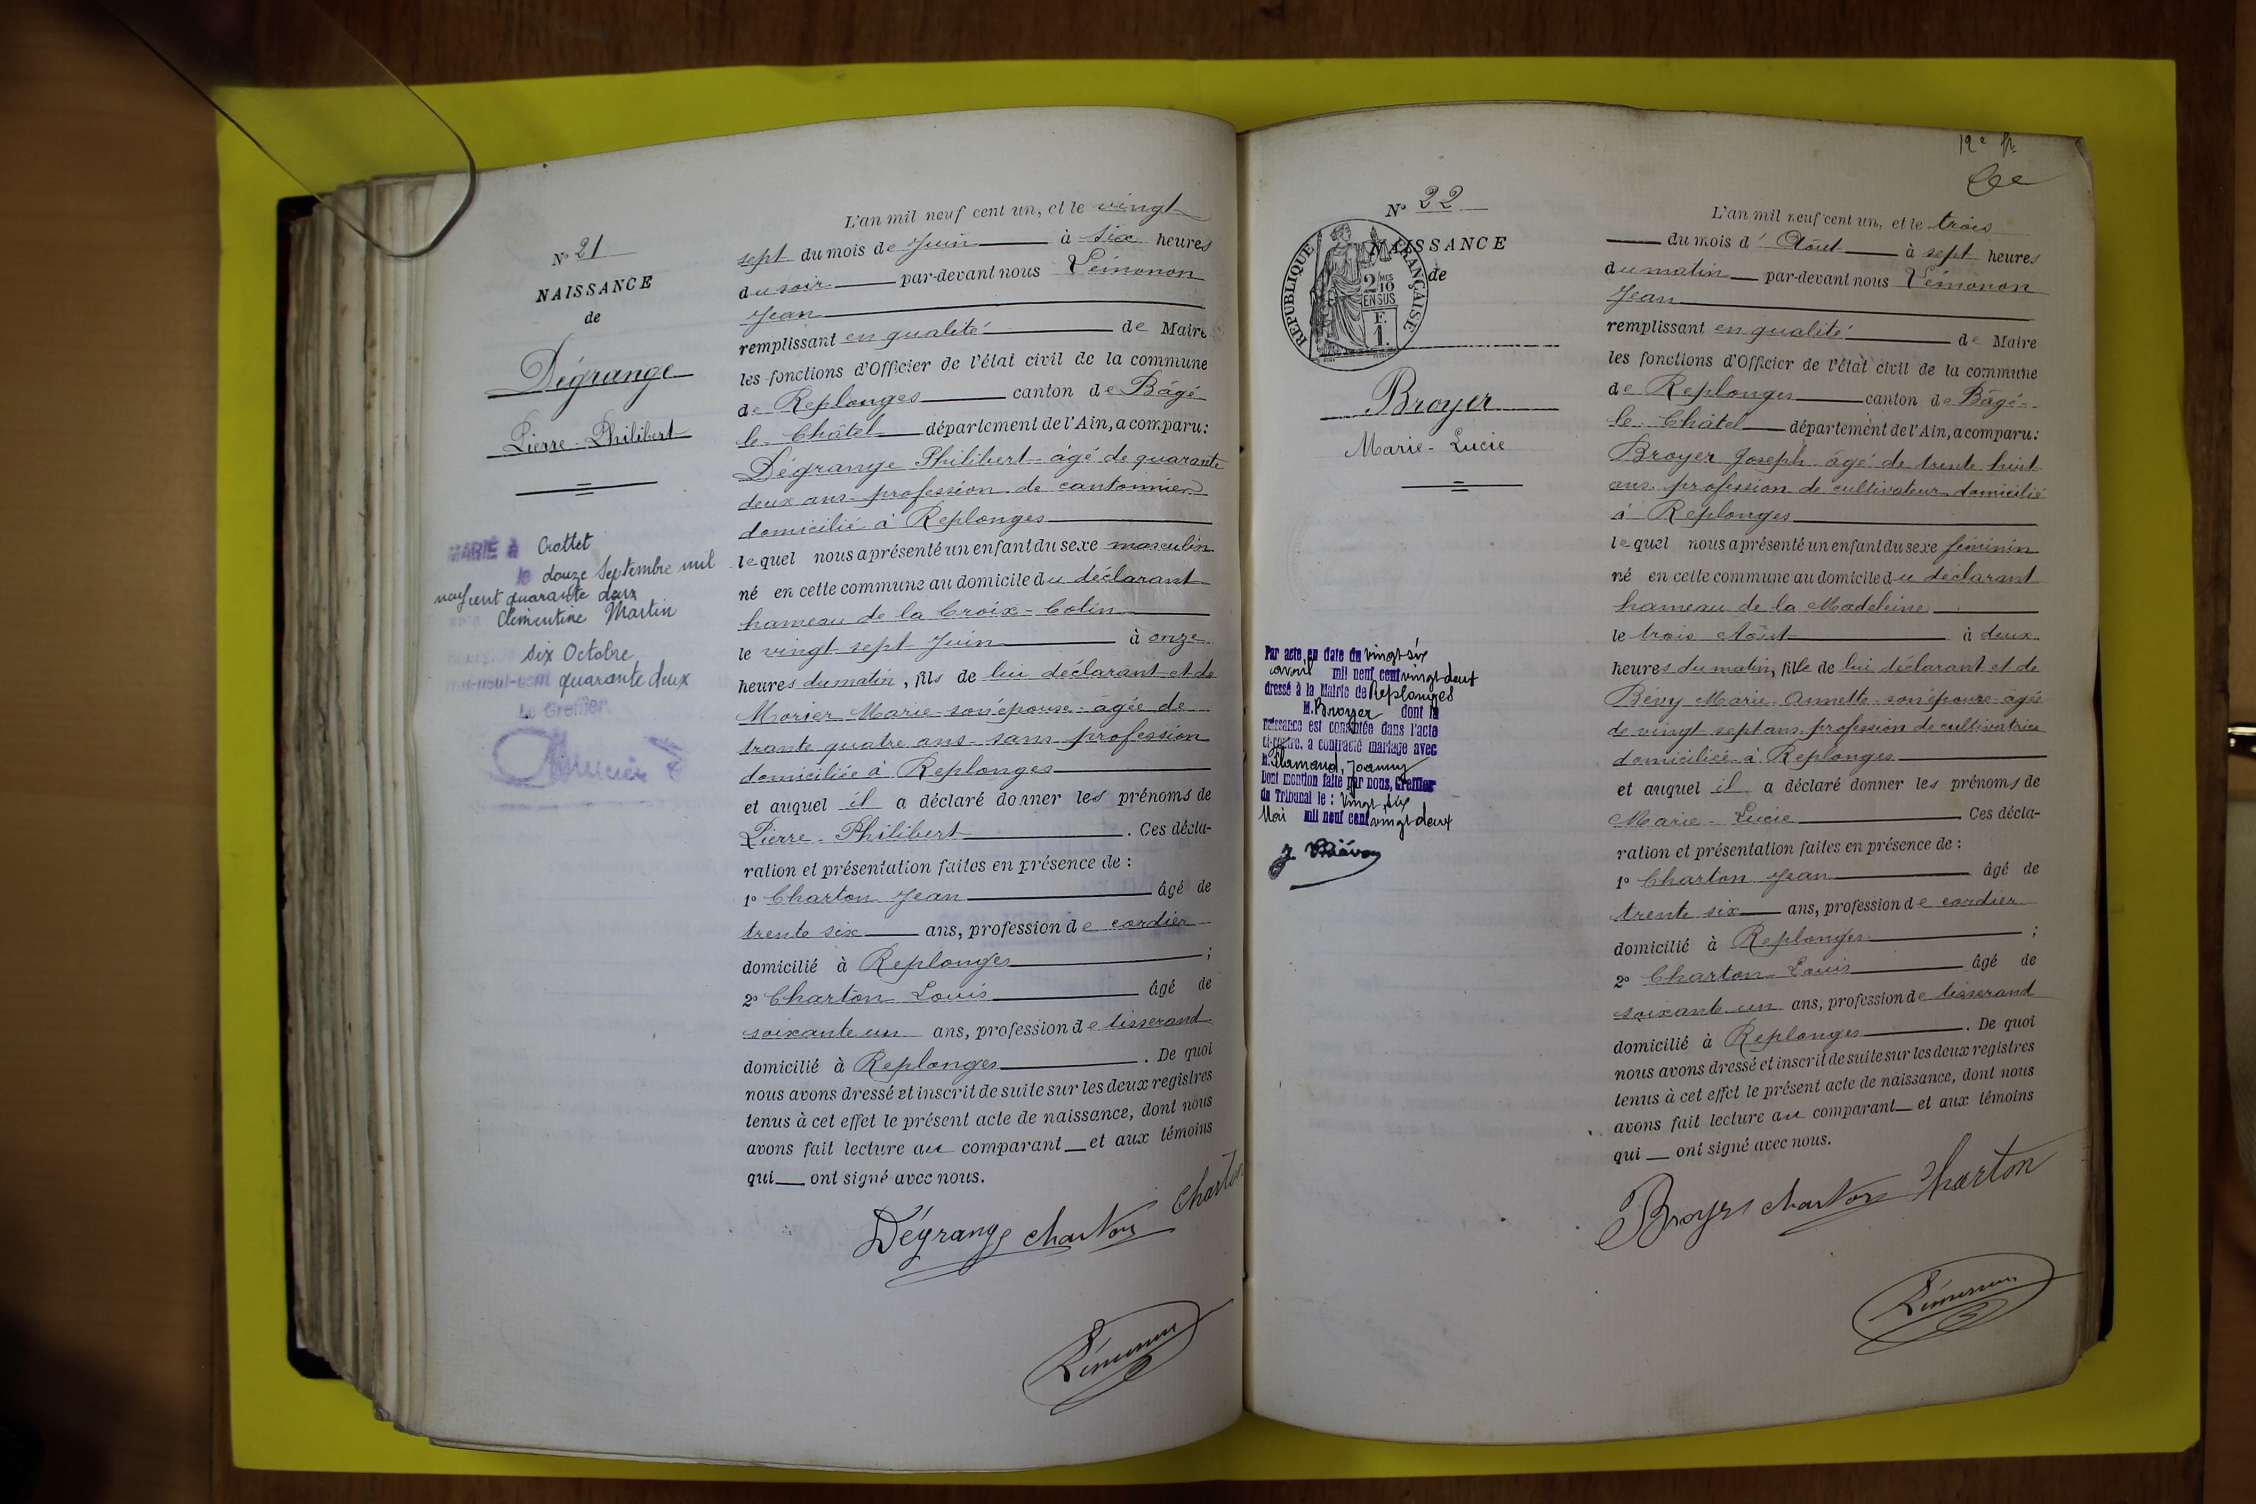 N° 21
NAISSANCE
de
Dégrange
Pierre-Philibert
MARIÉ à Crottet
le douze Septembre mil
neuf cent quarante deux
Clémentine Martin
six Octobre
mil-neuf-cent quarante deux
Le Greffier
L'an mil neuf cent un, et le vingt
sept du mois de Juin à six heures
du soir par-devant nous Lémonon
Jean
remplissant en qualité de Maire
les fonctions d'Officier de l'état civil de la commune
de Replonges canton de Bâgé-
le-Châtel département de l'Ain, a comparu:
Dégrange Philibert âgé de quarante
deux ans profession de cantonnier
domicilié à Replonges
lequel nous a présenté un enfant du sexe masculin
né en cette commune au domicile du déclarant
hameau de la Croix-Colin
le vingt sept Juin à onze
heures du matin, fils de lui déclarant et de
Morier Marie son épouse âgée de
trante quatre ans sans profession
domiciliée à Replonges
et auquel il a déclaré donner les prénoms de
Pierre-Philibert . Ces décla-
ration et présentation faites en présence de :
1° Charton Jean âgé de
trente six ans, profession de cordier
domicilié à Replonges ;
2° Charton Louis âgé de
soixante un ans, profession de tisserand
domicilié à Replonges . De quoi
nous avons dressé et inscrit de suite sur les deux registres
tenus à cet effet le présent acte de naissance, dont nous
avons fait lecture au comparant et aux témoins
qui ont signé avec nous.
Dégrange Charton Charton
Lémonon
N° 22
NAISSANCE
de
RÉPUBLIQUE FRANÇAISE
2 MES
10
EN SUS
F.
1.
Broyer
Marie-Lucie
Par acte en date du vingt six
avril mil neuf cent vingt deux
dressé à la Mairie de Replonges
M. Broyer dont la
naissance est constatée dans l'acte
ci-contre, a contracté mariage avec
M. Flamand, Joanny
Dont mention faite par nous, Greffier
du Tribunal le : vingt six
Mai mil neuf cent vingt deux
12e f.
L'an mil neuf cent un, et le trois
du mois d'Août à sept heures
du matin par-devant nous Lémonon
Jean
remplissant en qualité de Maire
les fonctions d'Officier de l'état civil de la commune
de Replonges canton de Bâgé-
le-Châtel département de l'Ain, a comparu:
Broyer Joseph âgé de trente huit
ans profession de cultivateur domicilié
à Replonges
lequel nous a présenté un enfant du sexe féminin
né en cette commune au domicile du déclarant
hameau de la Madeleine
le trois Août à deux
heures du matin, fille de lui déclarant et de
Bény Marie Annette son épouse âgée
de vingt sept ans profession de cultivatrice
domiciliée à Replonges
et auquel il a déclaré donner les prénoms de
Marie-Lucie Ces décla-
ration et présentation faites en présence de :
1° Charton Jean âgé de
trente six ans, profession de cordier
domicilié à Replonges ;
2° Charton Louis âgé de
soixante un ans, profession de tisserand
domicilié à Replonges . De quoi
nous avons dressé et inscrit de suite sur les deux registres
tenus à cet effet le présent acte de naissance, dont nous
avons fait lecture au comparant et aux témoins
qui ont signé avec nous.
Broyer Charton Charton
Lémonon